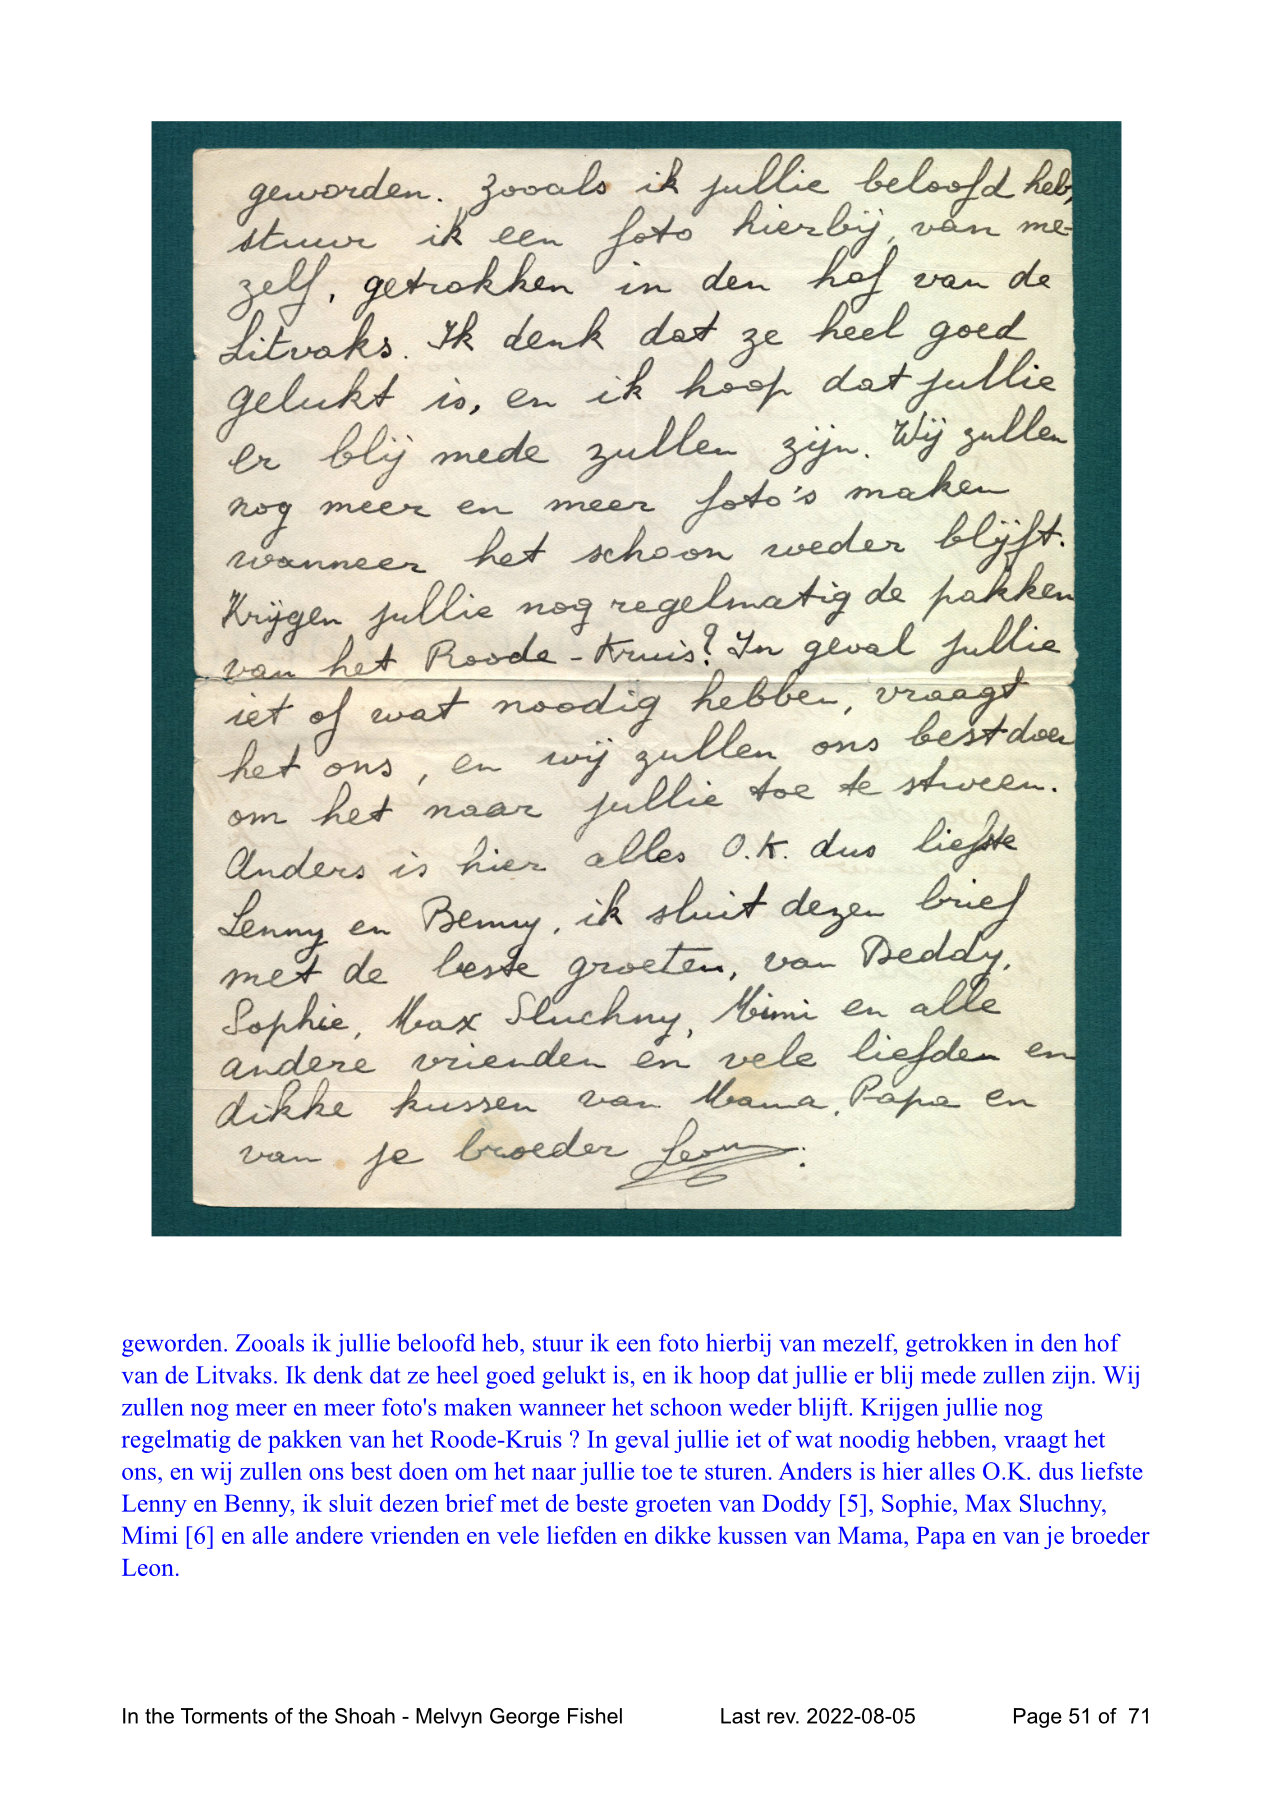 geworden. Zooals ik jullie beloofd heb,
stuur ik een foto hierbij, van me-
zelf, getrokken in den hof van de
Litvaks. Ik denk dat ze heel goed
gelukt is, en ik hoop dat jullie
er blij mede zullen zijn. Wij zullen
nog meer en meer foto's maken
wanneer het schoon weder blijft.
Krijgen jullie nog regelmatig de pakken
van het Roode-Kruis? In geval jullie
iet of wat noodig hebben, vraagt
het ons, en wij zullen ons best doen
om het naar jullie toe te stureen.
Anders is hier alles O.K. dus liefste
Lenny en Benny, ik sluit dezen brief
met de beste groeten, van Deddy,
Sophie, Max Sluchny, Mimi en alle
andere vrienden en vele liefden en
dikke kussen van Mama, Papa en
van je broeder Leon.
geworden. Zooals ik jullie beloofd heb, stuur ik een foto hierbij van mezelf, getrokken in den hof
van de Litvaks. Ik denk dat ze heel goed gelukt is, en ik hoop dat jullie er blij mede zullen zijn. Wij
zullen nog meer en meer foto's maken wanneer het schoon weder blijft. Krijgen jullie nog
regelmatig de pakken van het Roode-Kruis ? In geval jullie iet of wat noodig hebben, vraagt het
ons, en wij zullen ons best doen om het naar jullie toe te sturen. Anders is hier alles O.K. dus liefste
Lenny en Benny, ik sluit dezen brief met de beste groeten van Doddy [5], Sophie, Max Sluchny,
Mimi [6] en alle andere vrienden en vele liefden en dikke kussen van Mama, Papa en van je broeder
Leon.
In the Torments of the Shoah - Melvyn George Fishel Last rev. 2022-08-05 Page 51 of 71